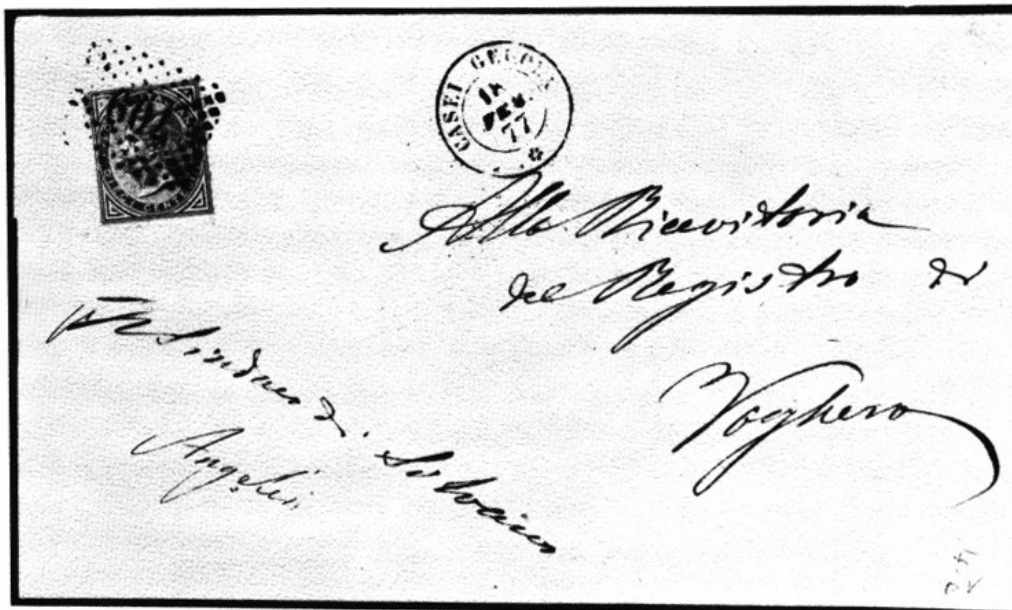 CASEI GEROLA
18
FEB
77
Alla Ricevitoria
del Registro di
Voghera
Il Sindaco di Silvano
Angeleri